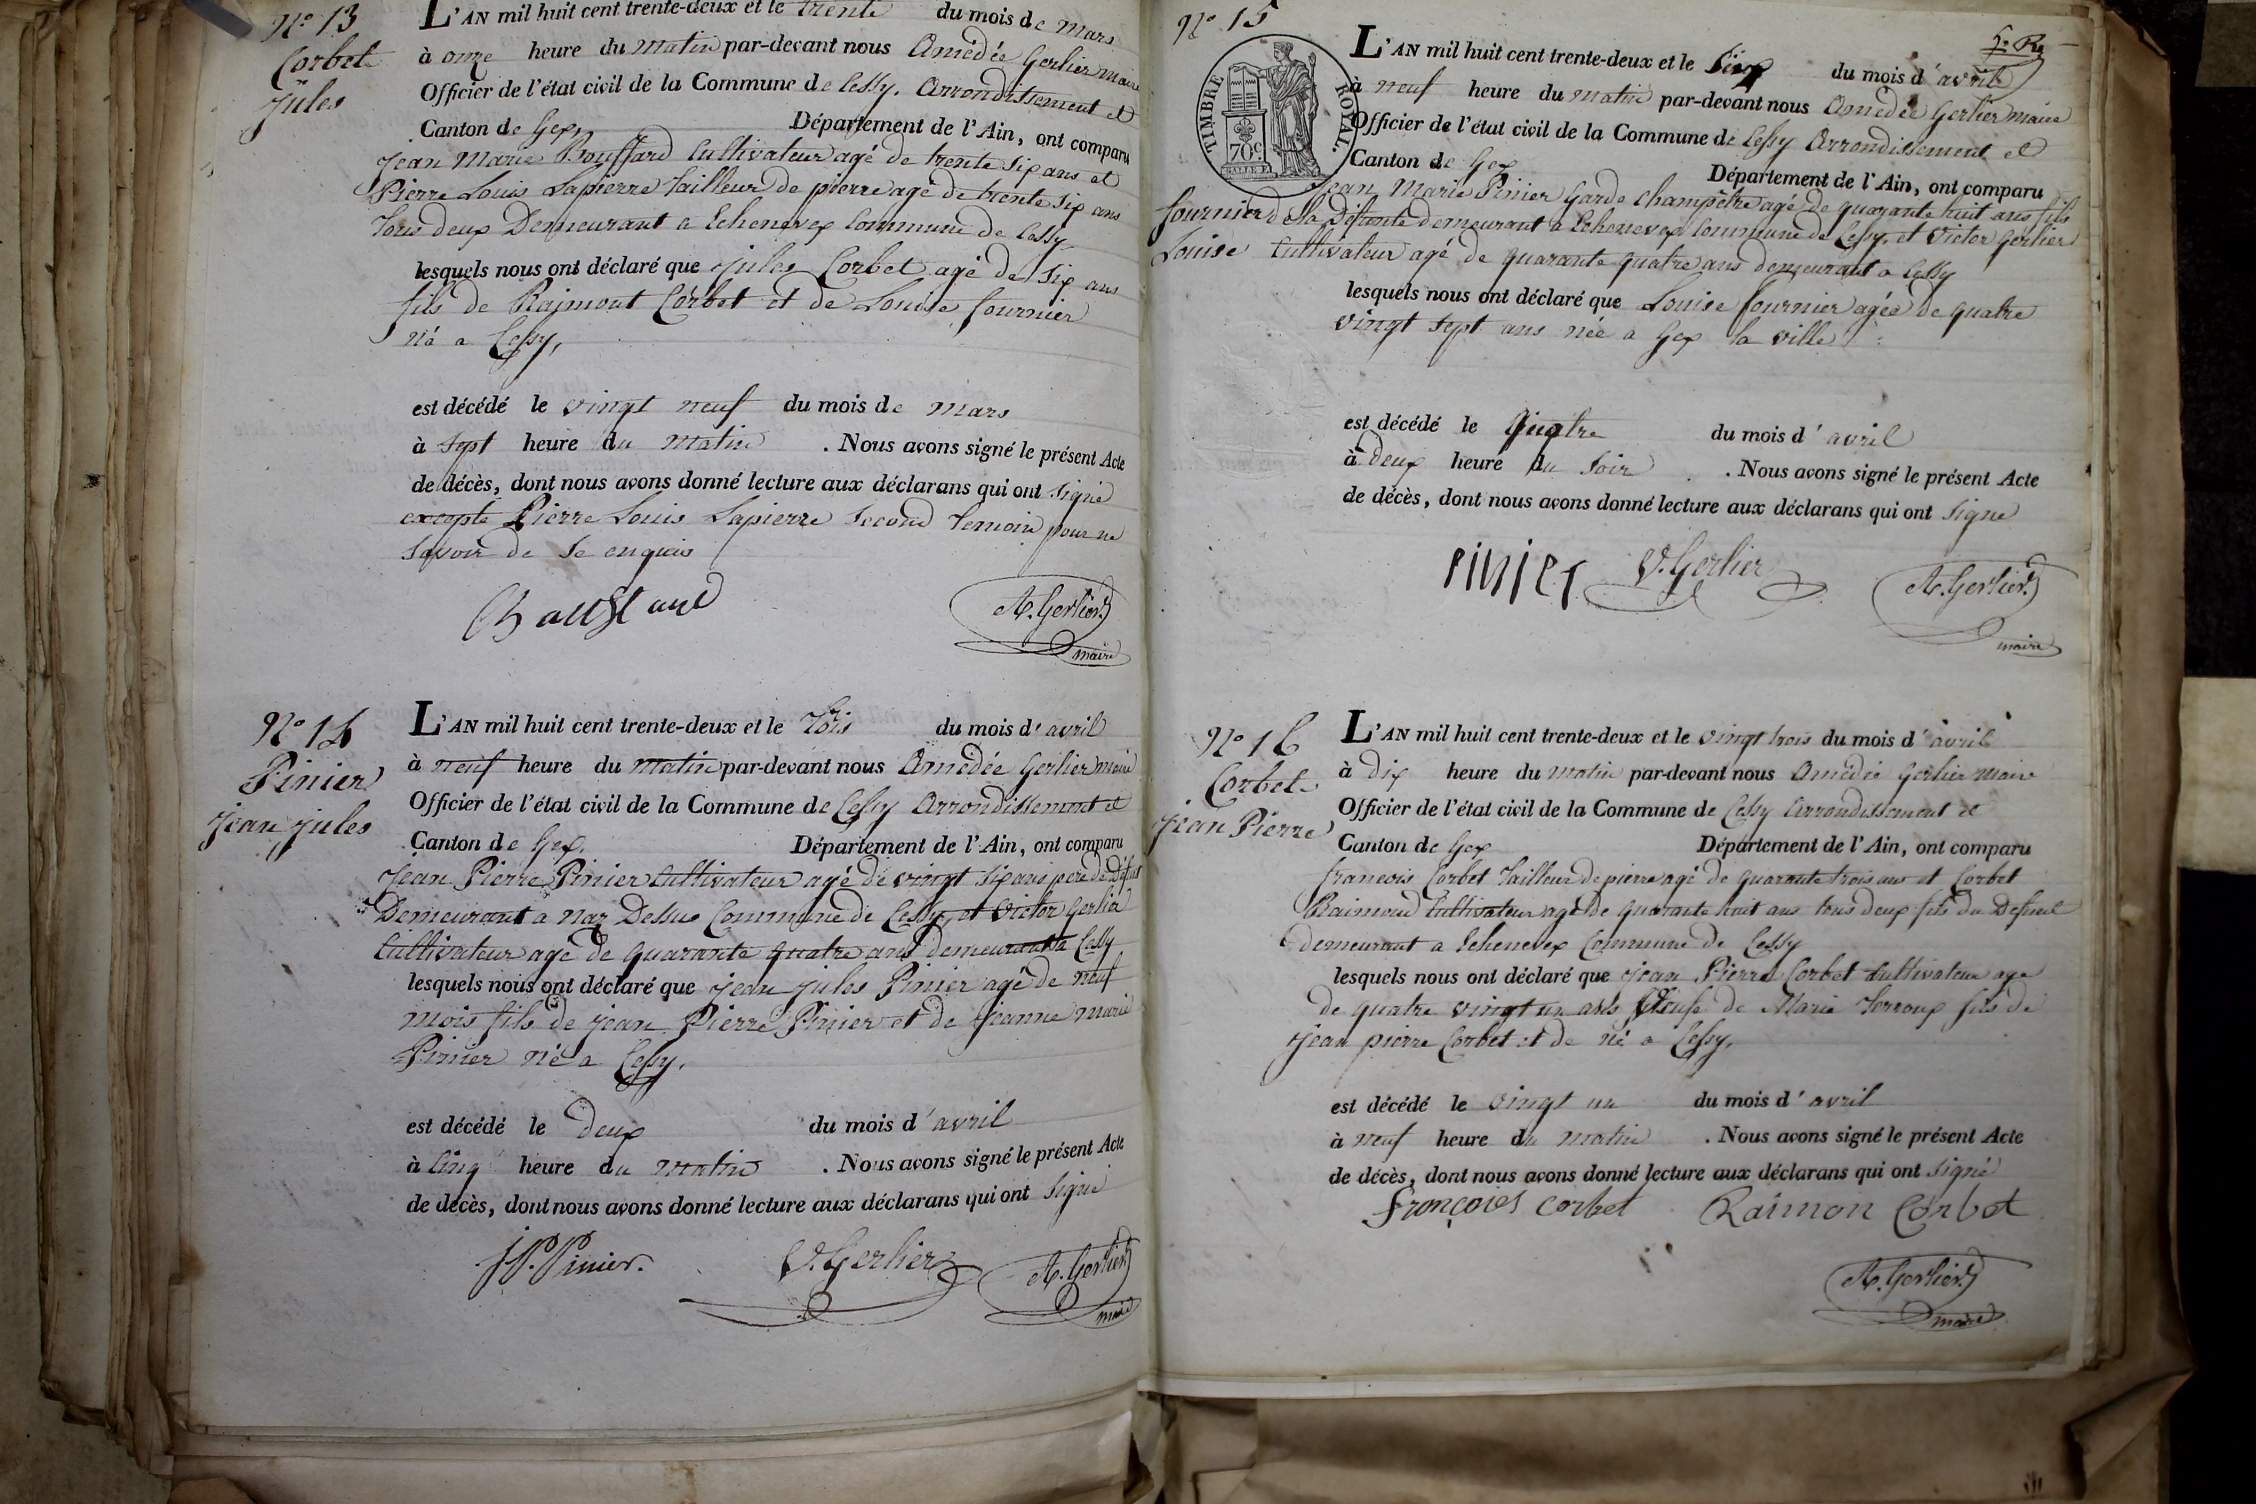 N° 13
Corbet
Jules
L'AN mil huit cent trente-deux et le trente du mois de mars
à onze heure du matin par-devant nous Amédée Gerlier maire
Officier de l'état civil de la Commune de Cessy. Arrondissement et
Canton de Gex, Département de l'Ain, ont comparu
Jean Marie Bouffard Cultivateur agé de trente Six ans et
Pierre Louis Lapierre tailleur de pierre agé de trente Six ans
tous deux Demeurant a Echenevex Commune de Cessy
lesquels nous ont déclaré que Jules Corbet agé de Six ans
fils de Raimont Corbet et de Louise fournier
né a Cessy,
est décédé le vingt neuf du mois de mars
à sept heure du matin . Nous avons signé le présent Acte
de décès, dont nous avons donné lecture aux déclarans qui ont signé
excepté Pierre Louis Lapierre Second temoin pour ne
savoir de ce enquis
A. Gerlier
maire
N° 14
Pinier
Jean Jules
L'AN mil huit cent trente-deux et le trois du mois d'avril
à neuf heure du matin par-devant nous Amédée Gerlier maire
Officier de l'état civil de la Commune de Cessy Arrondissement et
Canton de Gex, Département de l'Ain, ont comparu
Jean Pierre Pinier Cultivateur agé de vingt Six ans pere du Défunt
Demeurant a Naz Dessus Commune de Cessy, et Victor Gerlier
Cultivateur agé de quarante quatre ans demeurant a Cessy
lesquels nous ont déclaré que Jean Jules Pinier agé de neuf
mois fils de Jean Pierre Pinier et de Jeanne Marie
Pinier né a Cessy,
est décédé le Deux du mois d'avril
à Cinq heure du matin . Nous avons signé le présent Acte
de décès, dont nous avons donné lecture aux déclarans qui ont signé
J. P. Pinier. V. Gerlier A. Gerlier
maire
N° 15
TIMBRE ROYAL
70 c
fournier
Louise
L'AN mil huit cent trente-deux et le Six du mois d'avril
à neuf heure du matin par-devant nous Amédée Gerlier maire
Officier de l'état civil de la Commune de Cessy Arrondissement et
Canton de Gex Département de l'Ain, ont comparu
Jean Marie Pinier Garde Champêtre agé de quarante huit ans fils
de la Défunte demeurant a Echenevex Commune de Cessy, et Victor Gerlier
Cultivateur agé de quarante quatre ans demeurant a Cessy
lesquels nous ont déclaré que Louise fournier agée de quatre
vingt sept ans née a Gex la ville
est décédé le Quatre du mois d'avril
à Deux heure du Soir . Nous avons signé le présent Acte
de décès, dont nous avons donné lecture aux déclarans qui ont signé
Pinier V. Gerlier A. Gerlier
maire
N° 16
Corbet
Jean Pierre
L'AN mil huit cent trente-deux et le vingt trois du mois d'avril
à dix heure du matin par-devant nous Amédée Gerlier maire
Officier de l'état civil de la Commune de Cessy Arrondissement et
Canton de Gex Département de l'Ain, ont comparu
francois Corbet Tailleur de pierre agé de quarante trois ans et Corbet
Raimond Cultivateur agé de quarante huit ans tous deux fils du Defunt
demeurant a Echenevex Commune de Cessy
lesquels nous ont déclaré que Jean Pierre Corbet Cultivateur age
de quatre vingt un ans Veuf de Marie Terroux fils de
Jean pierre Corbet et de né a Cessy,
est décédé le vingt un du mois d'avril
à neuf heure du matin . Nous avons signé le présent Acte
de décès, dont nous avons donné lecture aux déclarans qui ont signé
françois corbet Raimon Corbet
A. Gerlier
maire